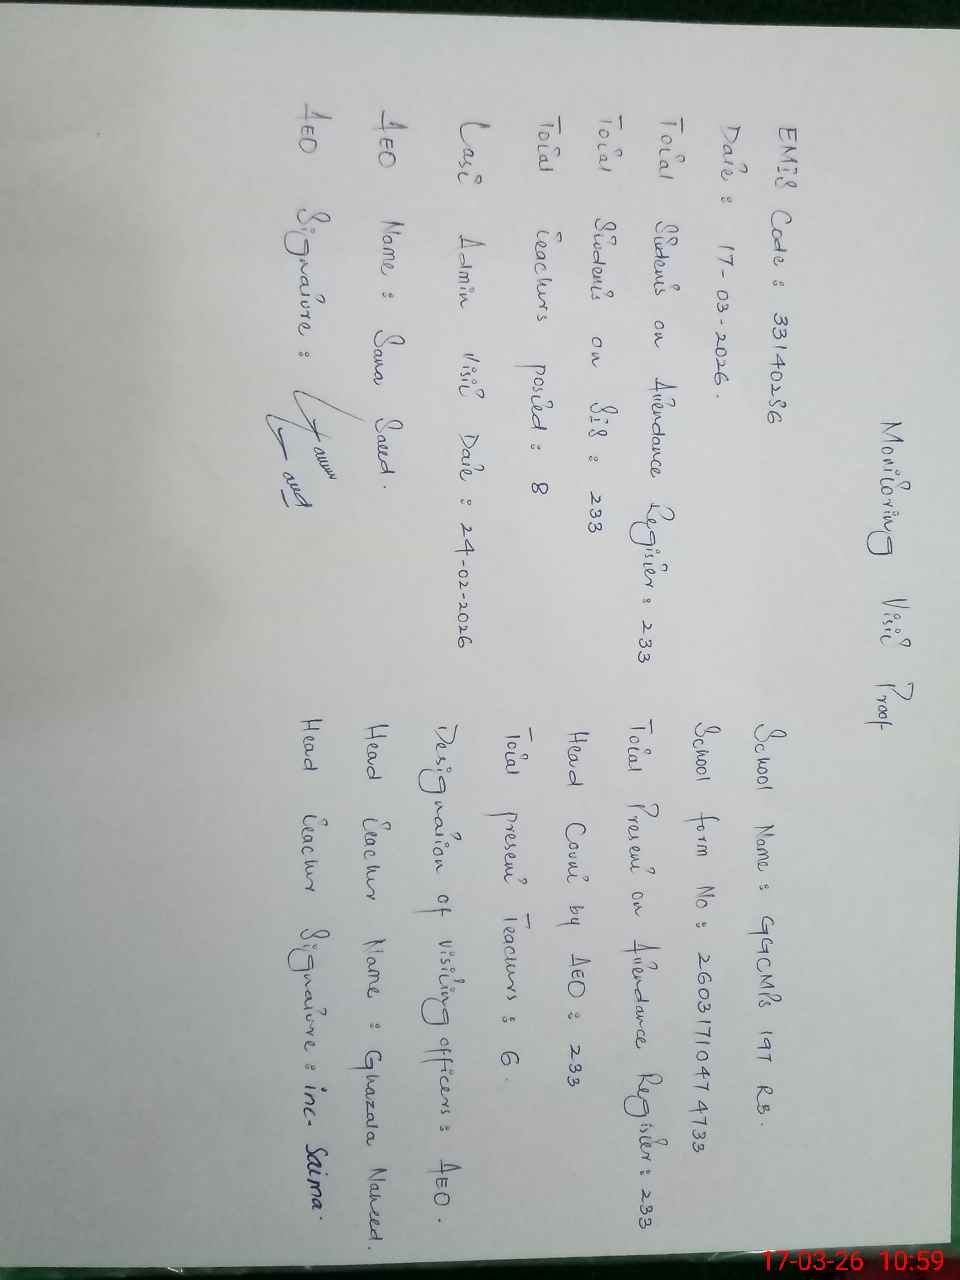 Monitoring Visit Proof
EMIS Code: 33140286
School Name: GGCMPS 197 RB.
Date: 17-03-2026.
School form No: 26031710474733
Total Students on Attendance Register: 233
Total Present on Attendance Register: 233
Total Students on SIS: 233
Head Count by AEO: 233
Total teachers posted: 8
Total present Teachers: 6.
Last Admin Visit Date: 24-02-2026
Designation of visiting officers: AEO.
AEO Name: Sana Saeed.
Head teacher Name: Ghazala Naheed.
AEO Signature:
Head teacher Signature: inc. Saima.
17-03-26 10:59